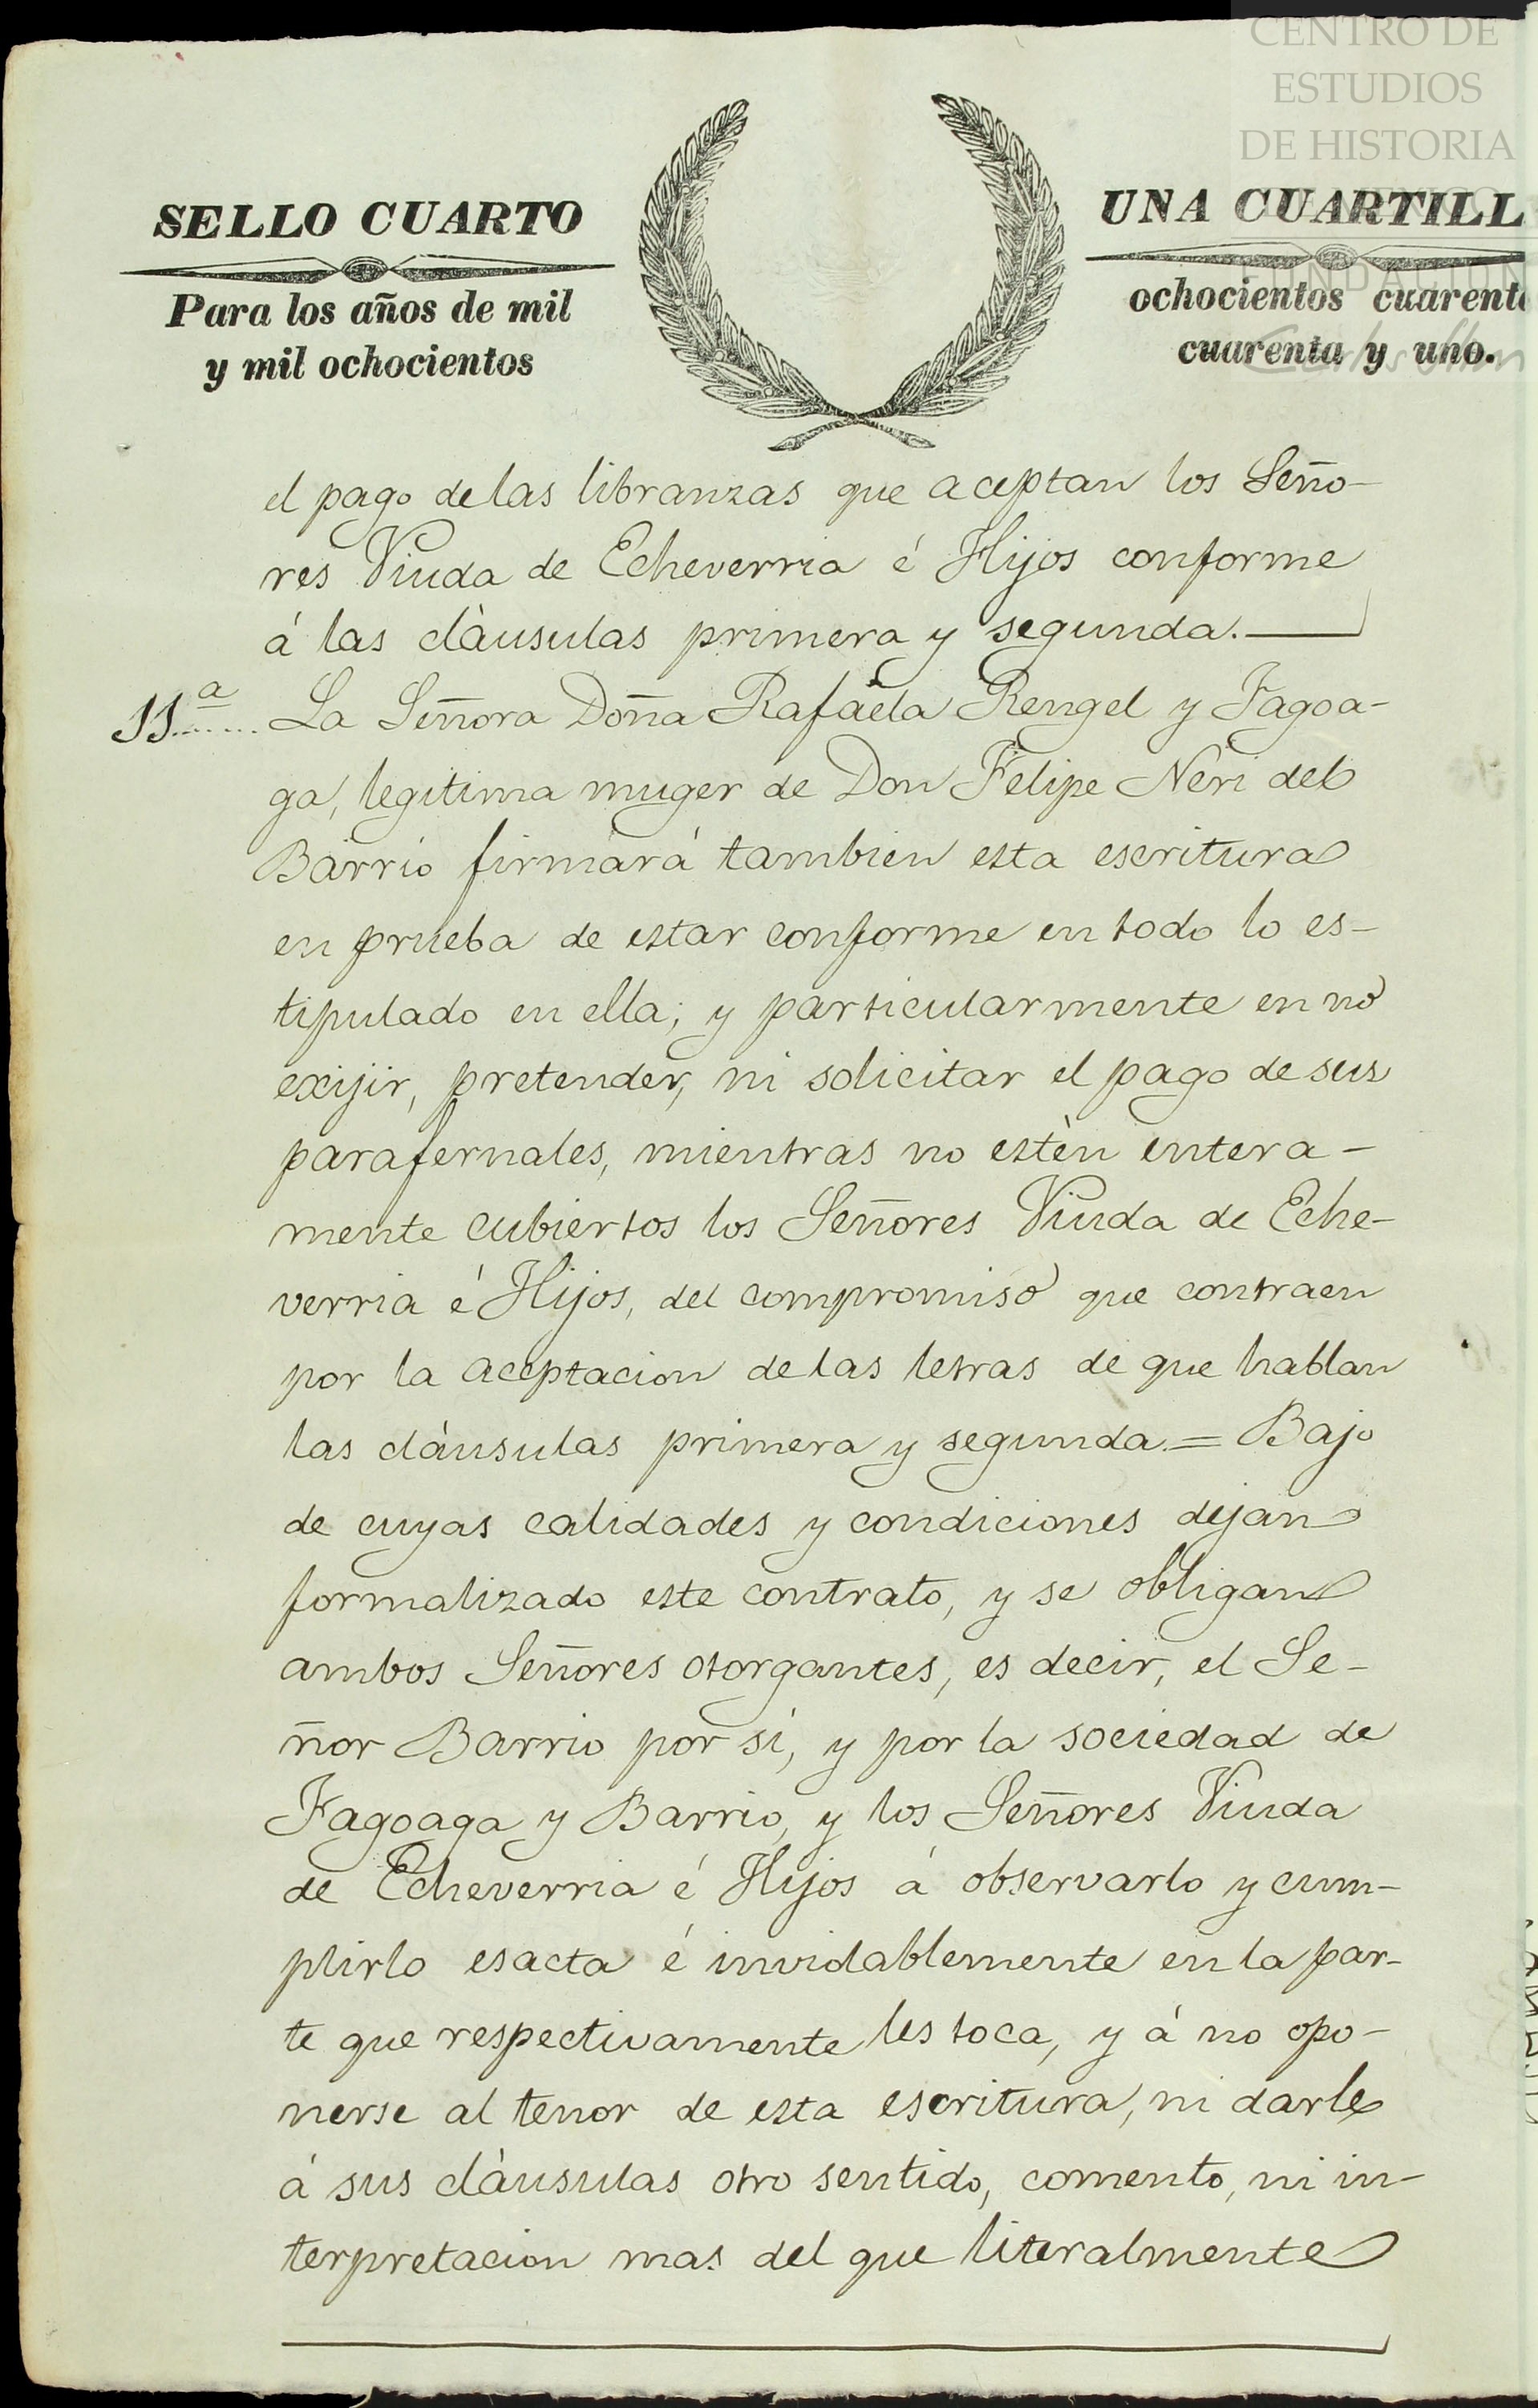 CENTRO DE
ESTUDIOS
DE HISTORIA
FUNDACION
SELLO CUARTO
UNA CUARTILL
Para los años de mil
ochocientos cuarent
y mil ochocientos
cuarenta y uno.
el pago de las libranzas que aceptan los Seño-
res Viuda de Echeverria é Hijos conforme
á las cláusulas primera y segunda.
11.a La Señora Doña Rafaela Rengel y Fagoa-
ga, legitima muger de Don Felipe Neri del
Barrio firmará tambien esta escritura
en prueba de estar conforme en todo lo es-
tipulado en ella; y particularmente en no
exijir, pretender, ni solicitar el pago de sus
parafernales, mientras no estèn entera-
mente cubiertos los Señores Viuda de Eche-
verria é Hijos, del compromiso que contraen
por la aceptacion de las letras de que hablan
las cláusulas primera y segunda.= Bajo
de cuyas calidades y condiciones dejan
formalizado este contrato, y se obligan
ambos Señores otorgantes, es decir, el Se-
ñor Barrio por sí, y por la sociedad de
Fagoaga y Barrio, y los Señores Viuda
de Echeverria é Hijos á observarlo y cum-
plirlo esacta é inviolablemente en la par-
te que respectivamente les toca, y á no opo-
nerse al tenor de esta escritura, ni darle
á sus cláusulas otro sentido, comento, ni in-
terpretacion mas del que literalmente